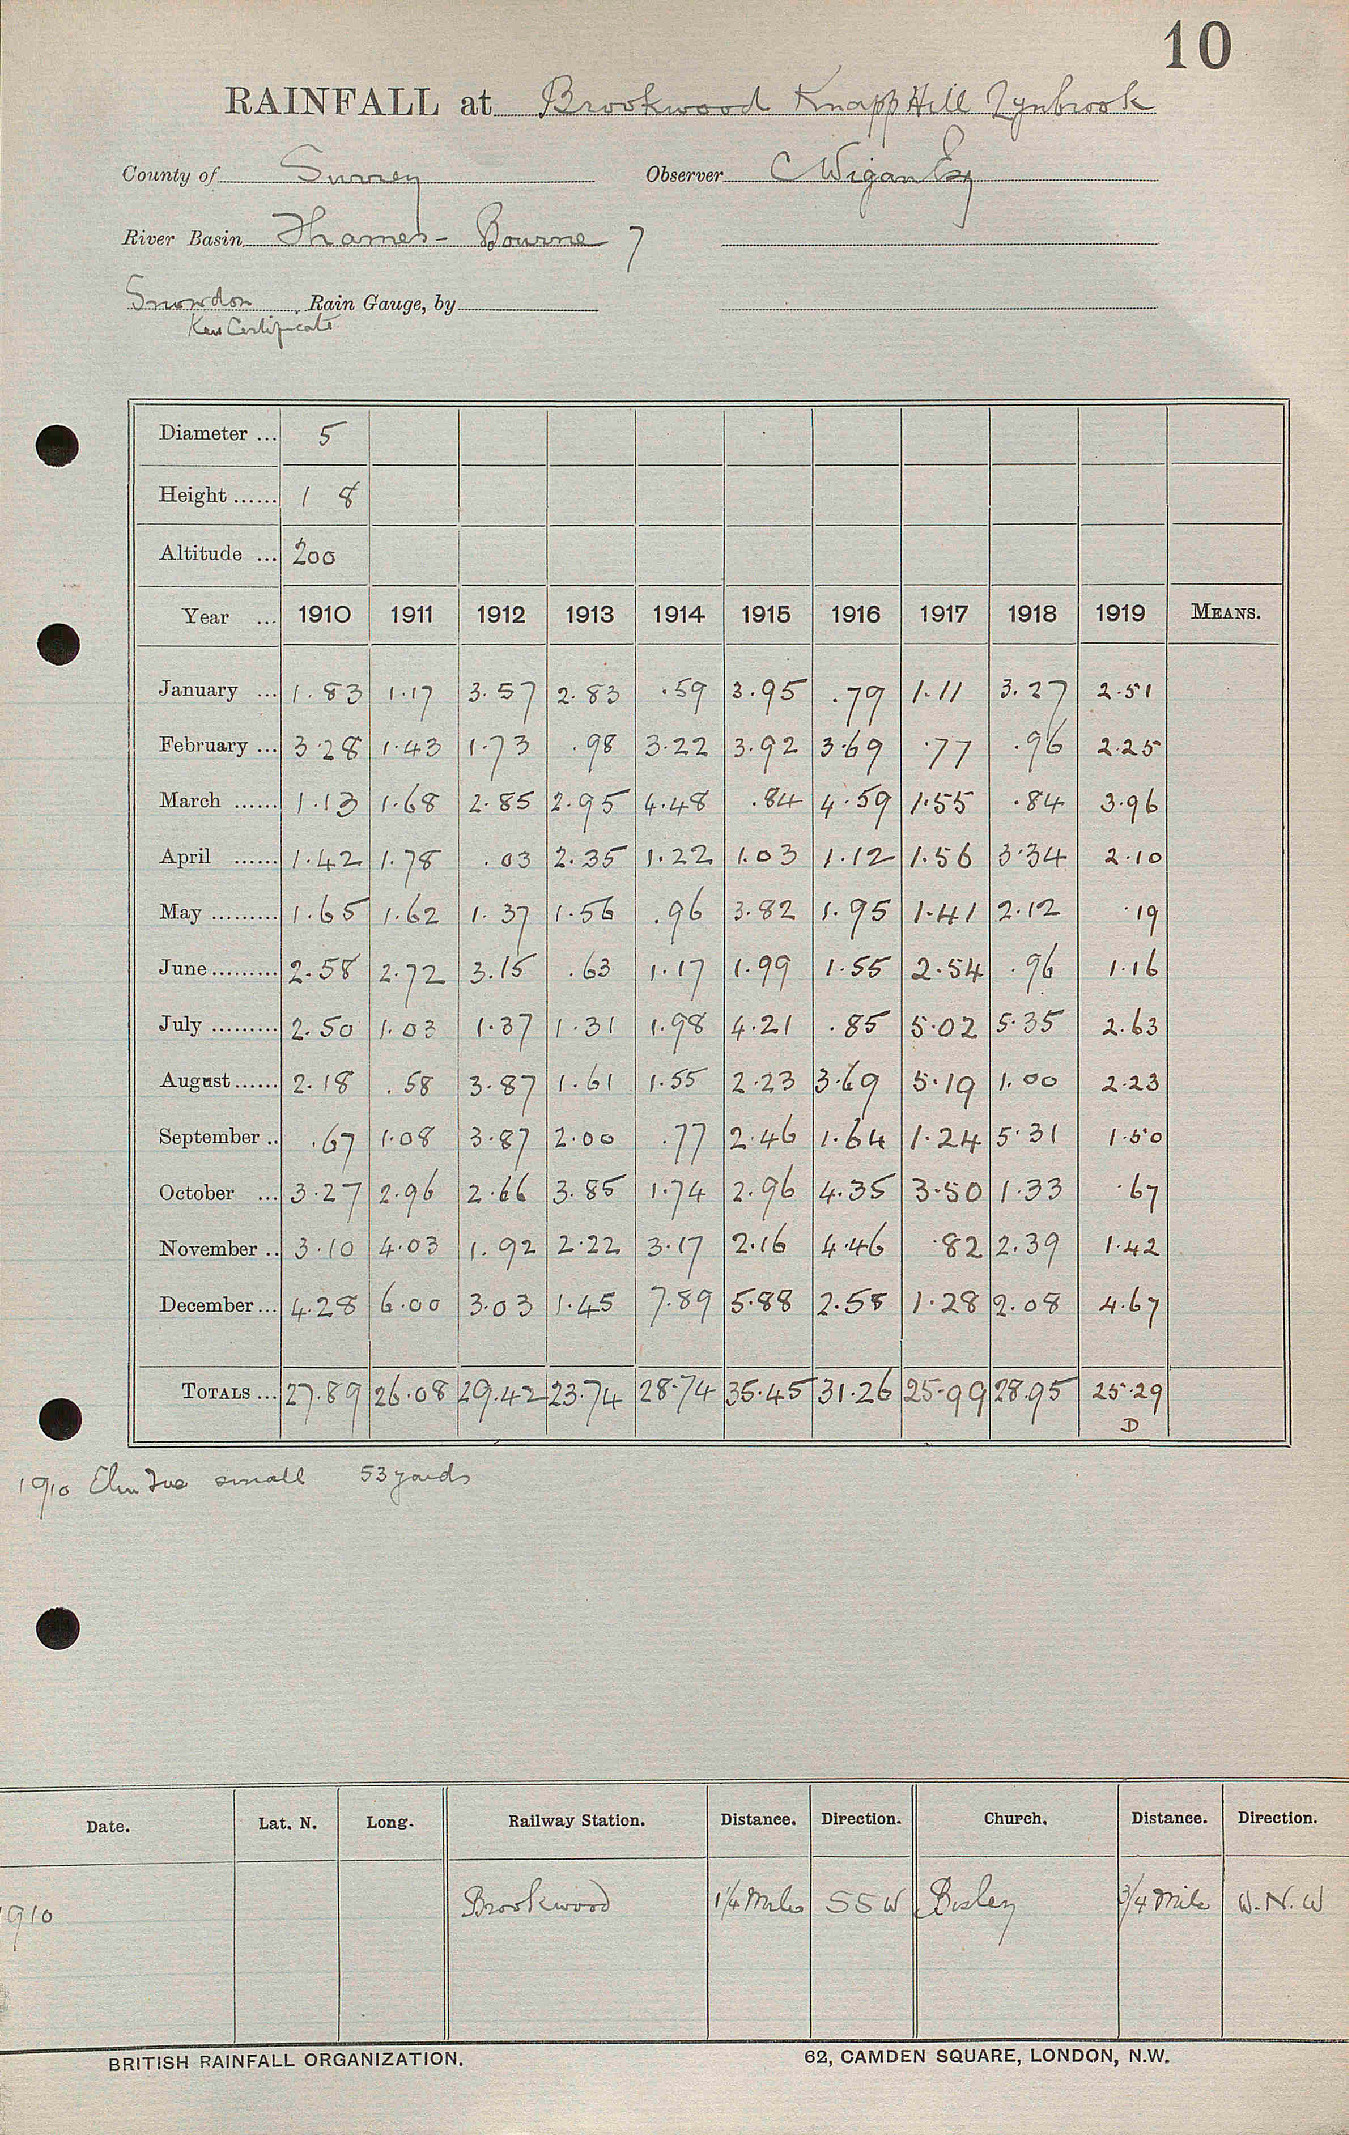 10
RAINFALL at Brookwood Knapp Hill Lynbrook
County of Surrey Observer C Wigan Esq
River Basin Thames - Bourne 7
Snowdon Rain Gauge, by
Kew Certificate
Diameter ... 5
Height ...... 1 8
Altitude ... 200
Year ... 1910 1911 1912 1913 1914 1915 1916 1917 1918 1919 MEANS.
January ... 1.83 1.17 3.57 2.83 .59 3.95 .79 1.11 3.27 2.51
February ... 3.28 1.43 1.73 .98 3.22 3.92 3.69 .77 .96 2.25
March ...... 1.13 1.68 2.85 2.95 4.48 .84 4.59 1.55 .84 3.96
April ...... 1.42 1.78 .03 2.35 1.22 1.03 1.12 1.56 3.34 2.10
May ......... 1.65 1.62 1.37 1.56 .96 3.82 1.95 1.41 2.12 .19
June ......... 2.58 2.72 3.15 .63 1.17 1.99 1.55 2.54 .96 1.16
July ......... 2.50 1.03 1.37 1.31 1.98 4.21 .85 5.02 5.35 2.63
August ...... 2.18 .58 3.87 1.61 1.55 2.23 3.69 5.19 1.00 2.23
September .. .67 1.08 3.87 2.00 .77 2.46 1.64 1.24 5.31 1.50
October ... 3.27 2.96 2.66 3.85 1.74 2.96 4.35 3.50 1.33 .67
November .. 3.10 4.03 1.92 2.22 3.17 2.16 4.46 .82 2.39 1.42
December ... 4.28 6.00 3.03 1.45 7.89 5.88 2.58 1.28 2.08 4.67
TOTALS ... 27.89 26.08 29.42 23.74 28.74 35.45 31.26 25.99 28.95 25.29
D
1910 Elm small 53 yards
Date. Lat. N. Long. Railway Station. Distance. Direction. Church. Distance. Direction.
1910 Brookwood 1 1/4 Miles SSW Bisley 3/4 Mile W.N.W
BRITISH RAINFALL ORGANIZATION. 62, CAMDEN SQUARE, LONDON, N.W.